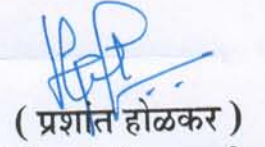 ( प्रशांत होळकर )